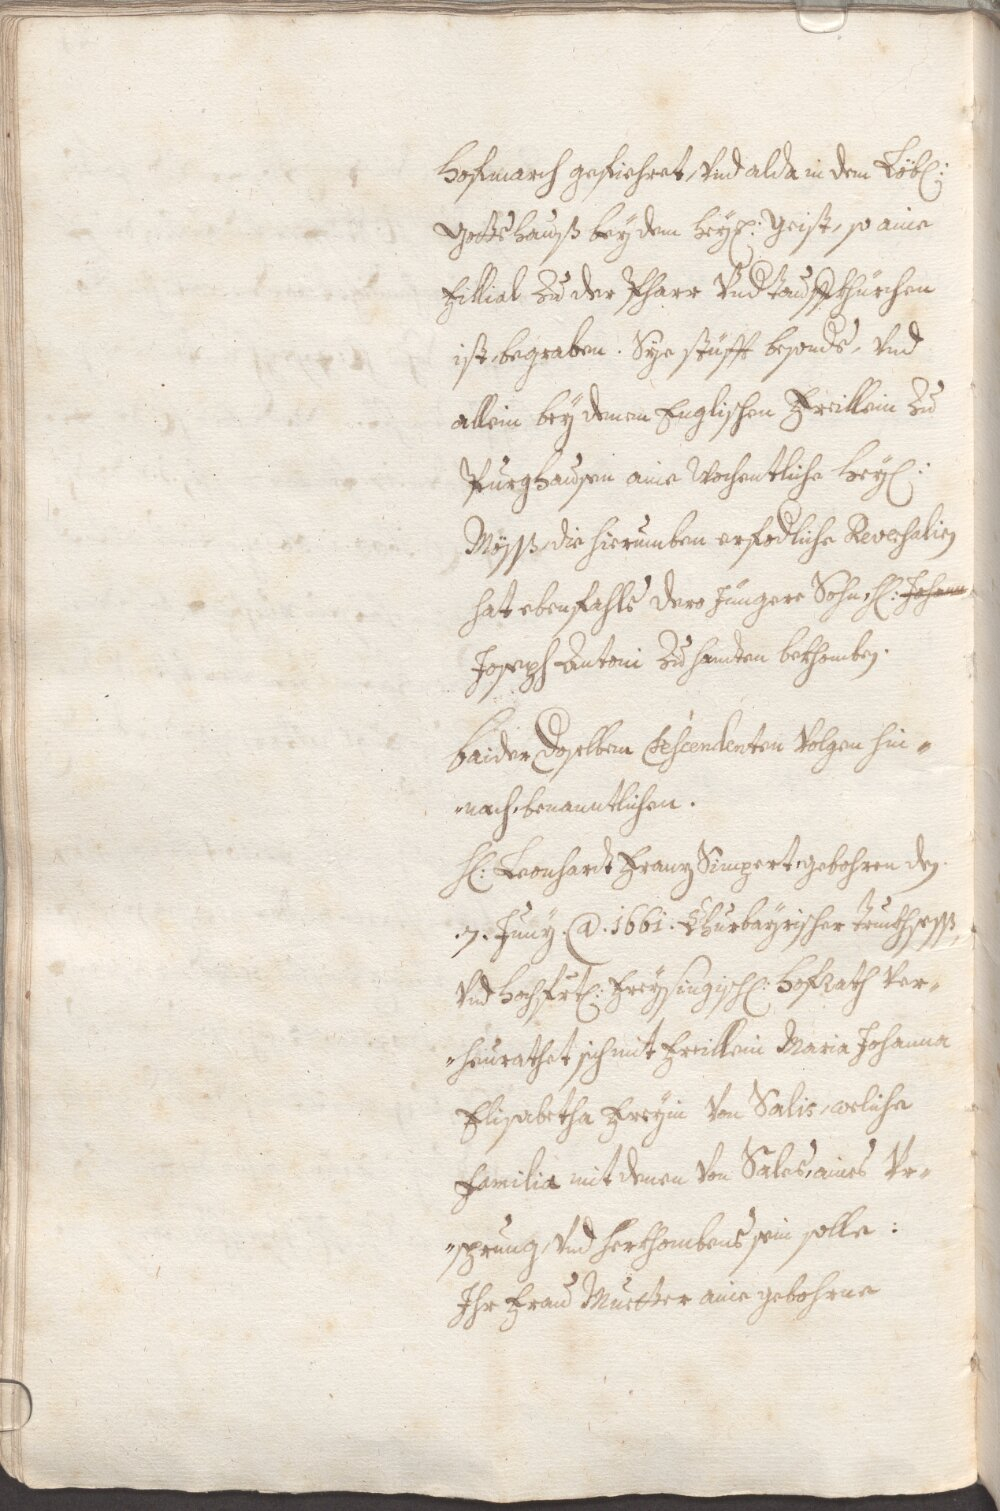 Hofmarch gefiehret, Vnd alda in dem Löbl:
Gottshauß bey dem Heyl: Geist, so aine
Fillial Zu der Pfarr Vnd Tauffkhürchen
ist, begraben. Sye stüfft besonds, Vnd
allein bey denen Englischen Freillein Zu
Purghausen aine Wochentliche Heyl:
Mösß, die hierumben erfodliche Reversalien
hat ebenfahls dero Jüngere Sohn, H: Johann
Joseph Antoni Zuhanden bekhomben.
Baider Doselben Descendenten Volgen hin„
„nach benanntlichen.
H: Leonhardt Franz Simpert, gebohren den
.7. Juny. A. 1661. Churbayrischer Truchsess,
Vnd Hochfrtl: Freysingisch: HofRath Ver„
„heurathet sich mit Freillein Maria Johanna
Elisabetha Freyin Von Salis, weliche
Familia mit denen Von Sales, aines Vr„
„sprung, Vnd herkhombens sein solle:
Ihr Frau Muetter aine gebohrne